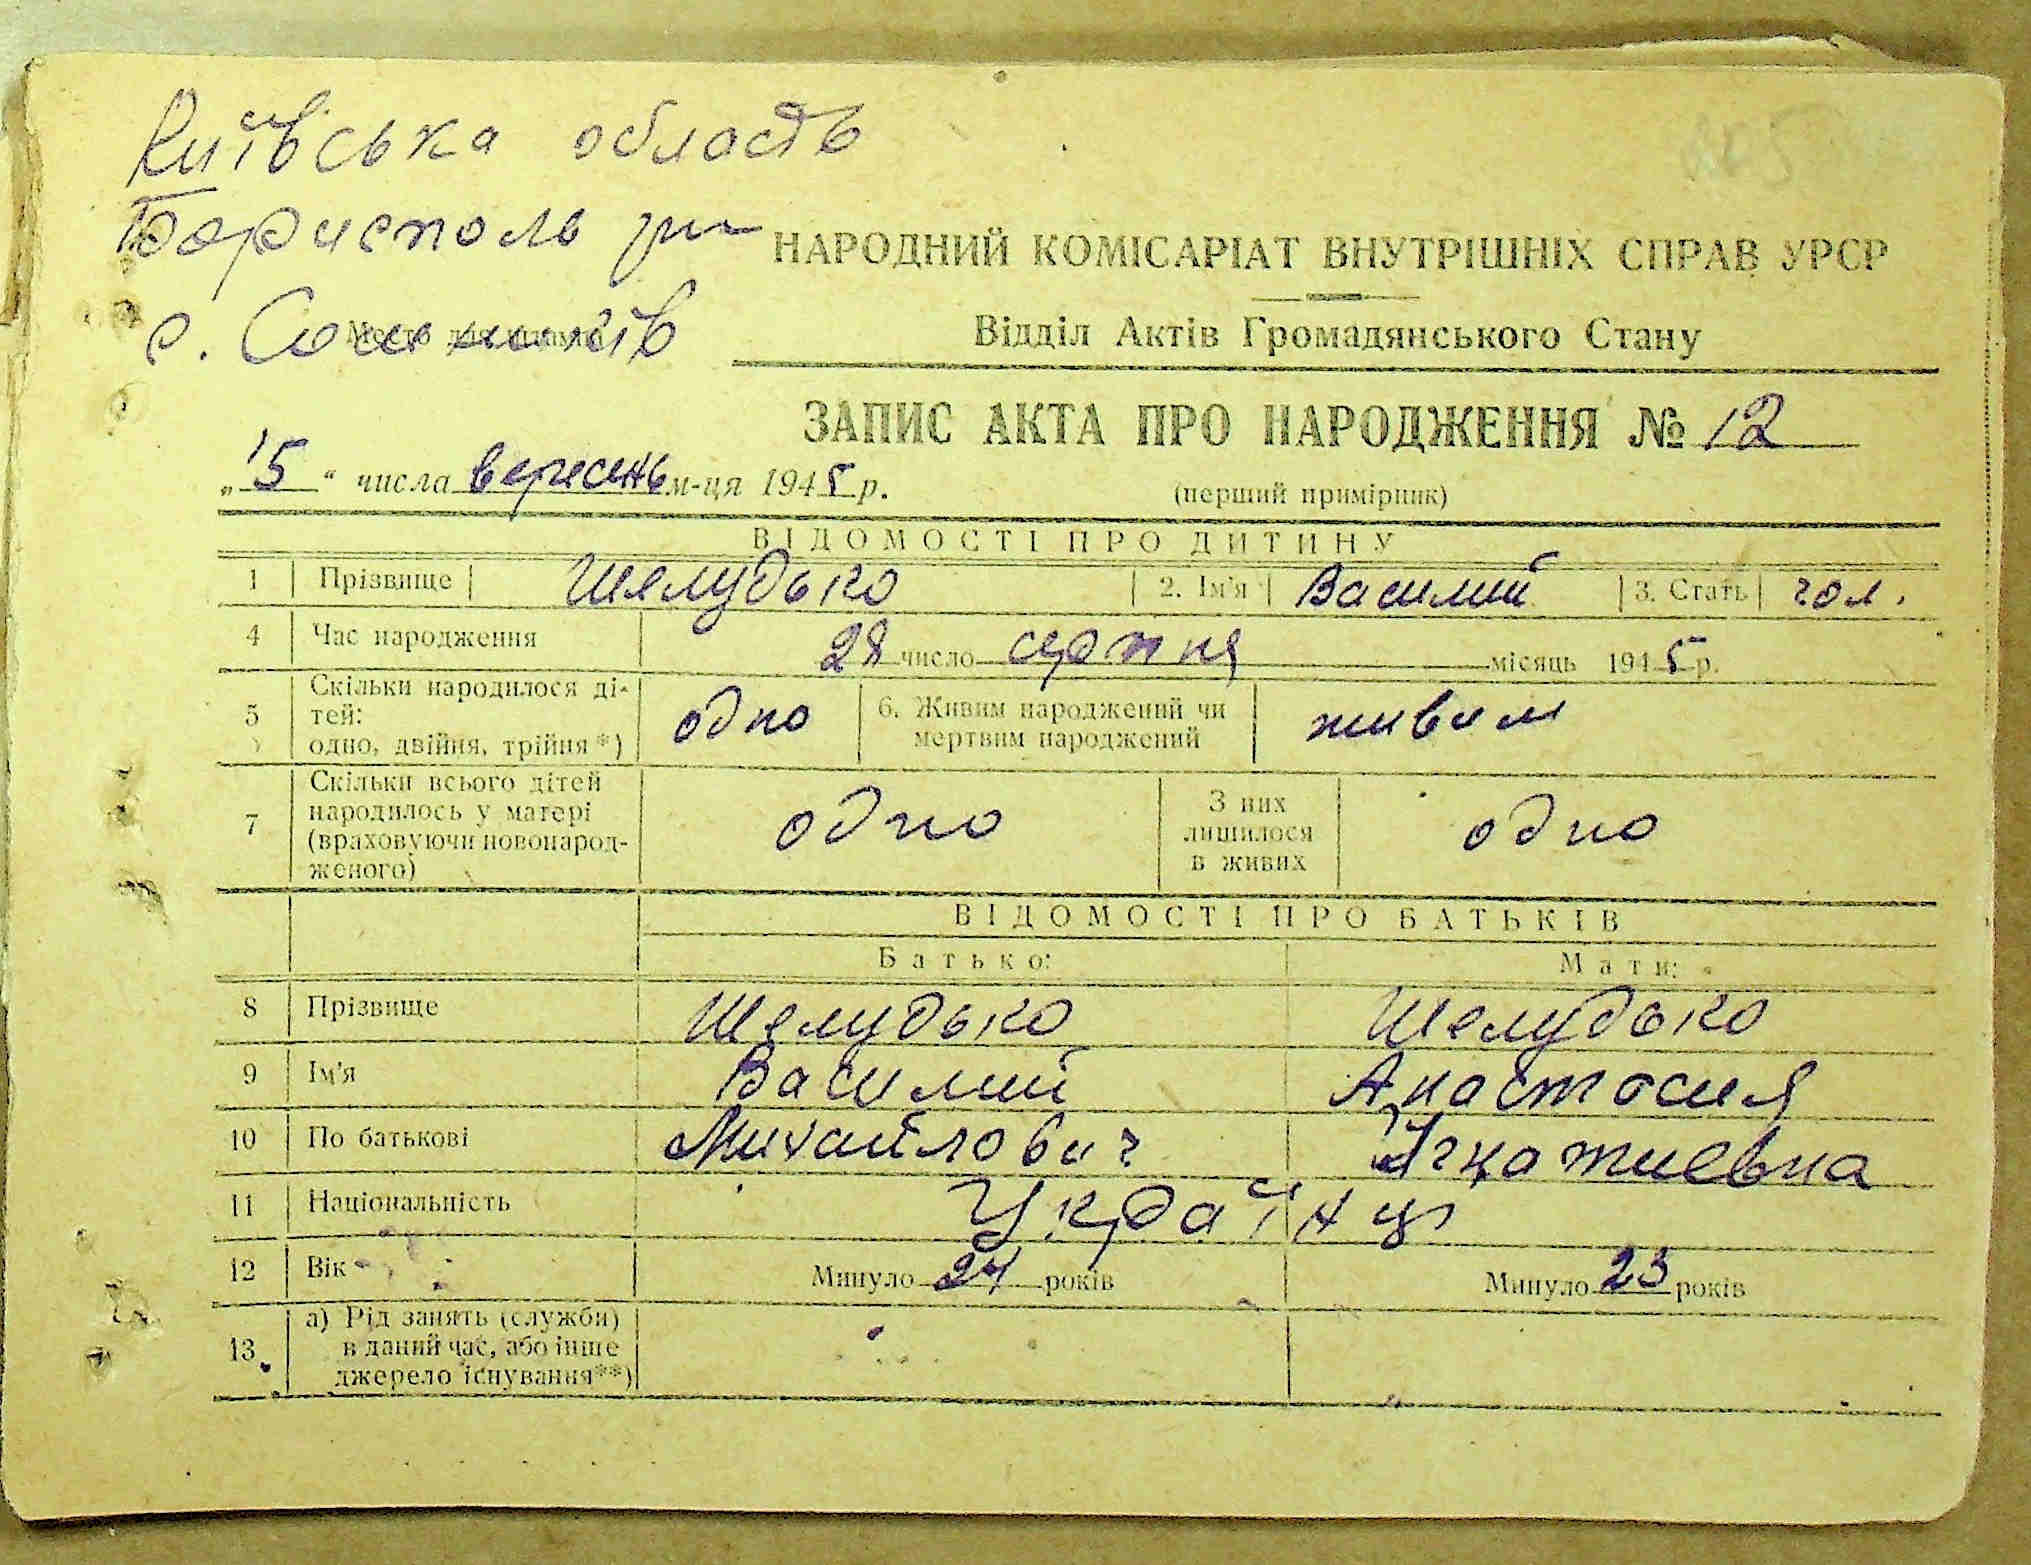 Київська область
Бориспільь рн
с. Сошників
Місце для штампу
НАРОДНИЙ КОМІСАРІАТ ВНУТРІШНІХ СПРАВ УРСР
Відділ Актів Громадянського Стану
ЗАПИС АКТА ПРО НАРОДЖЕННЯ № 12
„15“ числа вересень м-ця 1945 р.
(перший примірник)
ВІДОМОСТІ ПРО ДИТИНУ
1 Прізвище Шелудько 2. Ім'я Василий 3. Стать чол.
4 Час народження 28 число серпня місяць 1945 р.
5 Скільки народилося ді-
тей:
одно, двійня, трійня *) одно 6. Живим народжений чи
мертвим народжений живим
7 Скільки всього дітей
народилось у матері
(враховуючи новонарод-
женого) одно З них
лишилося
в живих одно
ВІДОМОСТІ ПРО БАТЬКІВ
Батько: Мати:
8 Прізвище Шелудько Шелудько
9 Ім'я Василий Анастасия
10 По батькові Михайлович
11 Національність Українці
12 Вік Минуло 24 років Минуло 23 років
13 а) Рід занять (служби)
в даний час, або інше
джерело існування**)